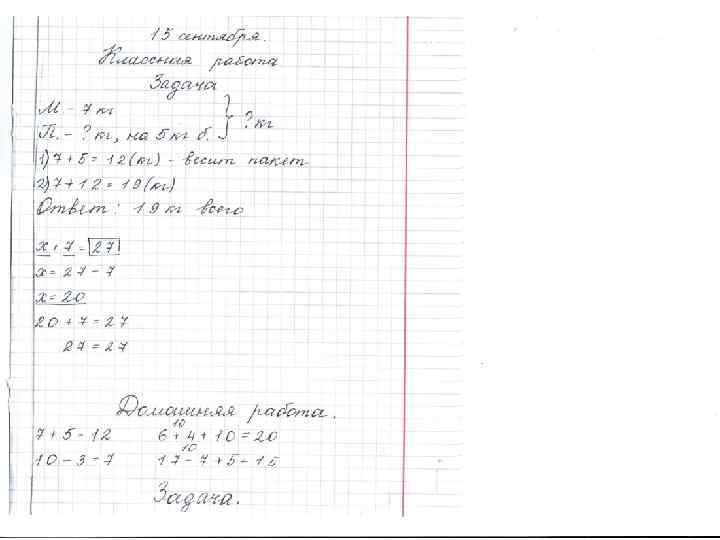 15 сентября.
Классная работа
Задача
М – 7 кг
П. – ? кг, на 5 кг б. } ? кг
1) 7 + 5 = 12 (кг) – весит пакет
2) 7 + 12 = 19 (кг)
Ответ: 19 кг всего
х + 7 = 27
х = 27 – 7
х = 20
20 + 7 = 27
27 = 27
Домашняя работа.
10
7 + 5 = 12 6 + 4 + 10 = 20
10
10 – 3 = 7 17 – 7 + 5 = 15
Задача.